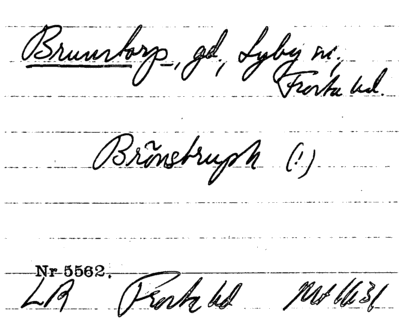 Brunstorp, gd, Lyby sn,
Frosta hd.
Brõnstruph (!)
Nr 5562.
LR Frosta hd Mt 1631